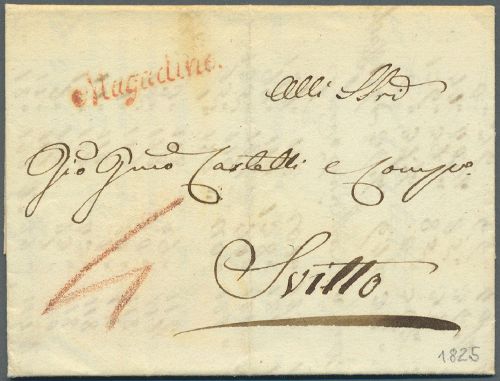 Magadino.
Alli SSri
Gio Castelli e Comp.o
Svitto
4
1825